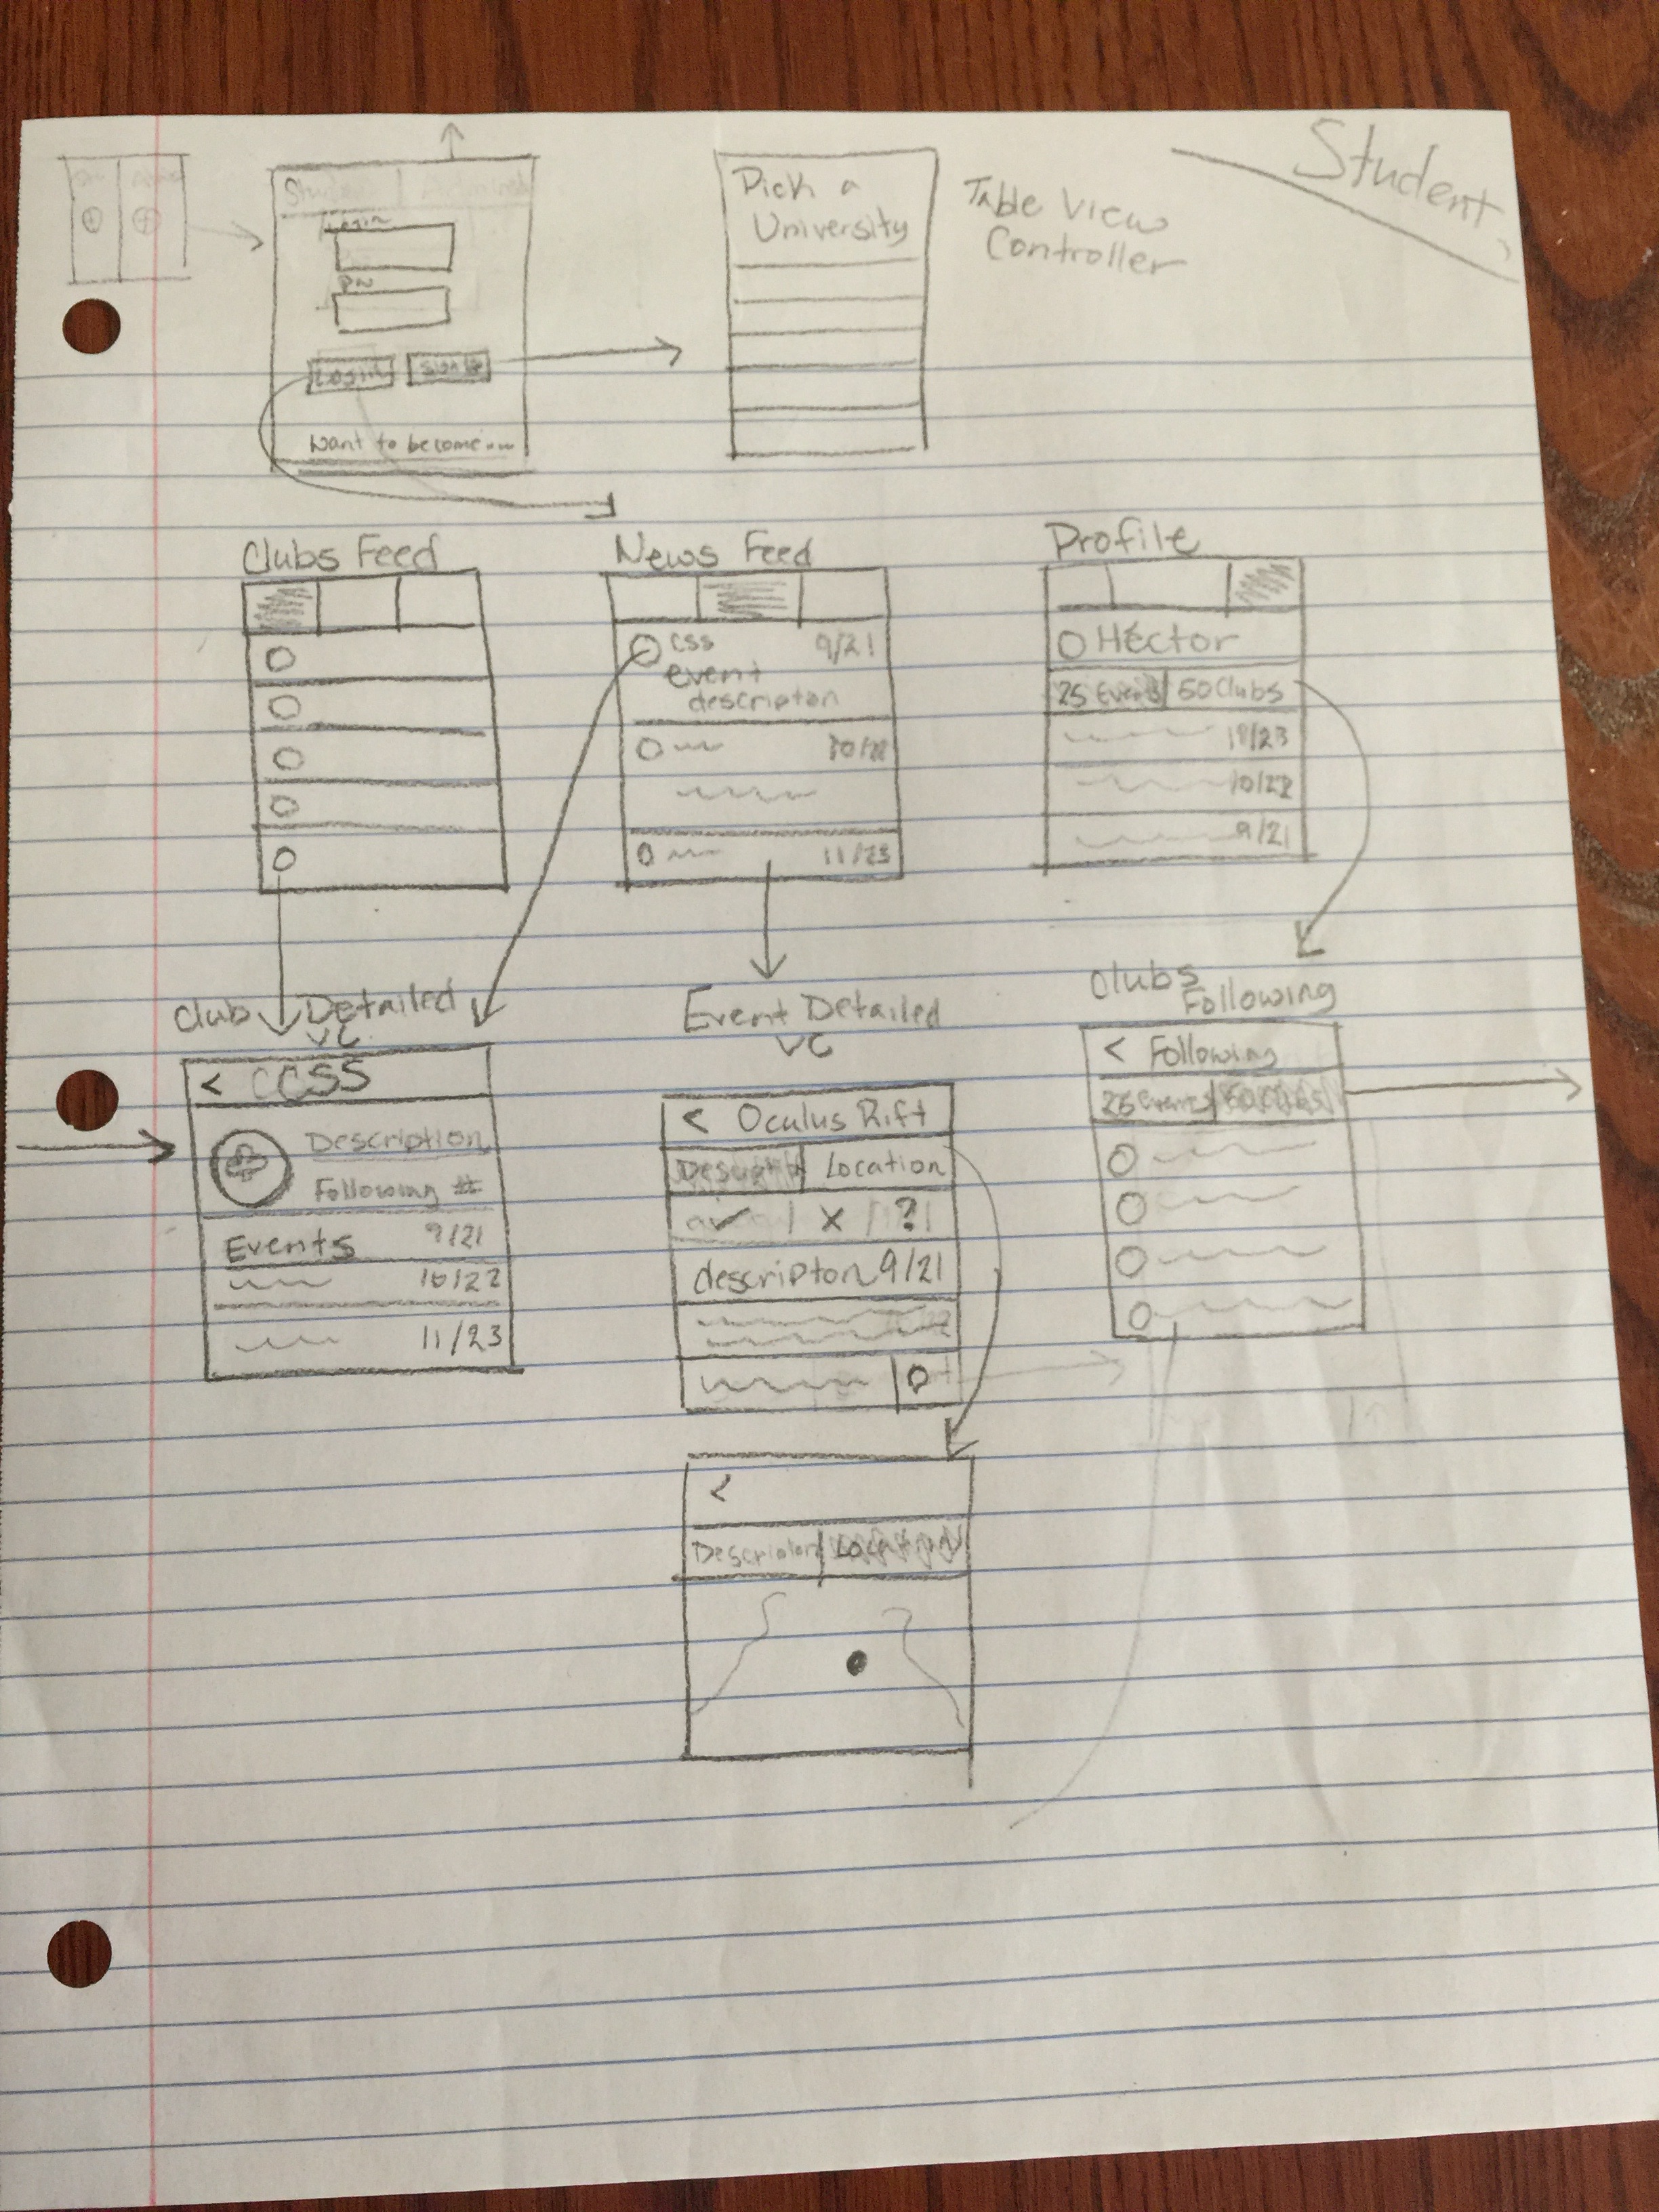 Student
Login
PW
Login
Want to become...
Pick a
University
Table View
Controller
Clubs Feed
News Feed
css 9/21
event
descripton
11/23
Profile
Hector
25 Events 50 Clubs
10/22
9/21
Club Detailed
VC
< CCSS
Description
Following #
Events 9/21
10/22
11/23
Event Detailed
VC
< Oculus Rift
Location
✓ | X | ?
descripton 9/21
Clubs
Following
< Following
25 events
<
Location